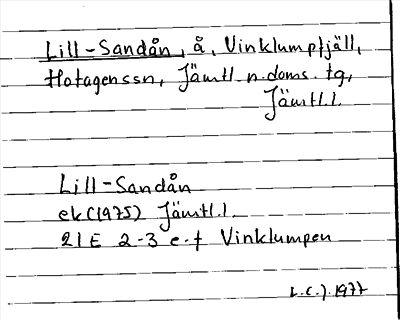 Lill-Sandån, å, Vinklumpfjäll,
Hotagenssn, Jämtl. n. doms. tg,
Jämtl.l.
Lill-Sandån
ek(1975) Jämtl.l
21E 2-3 e-f Vinklumpen
L.C.J. 1977